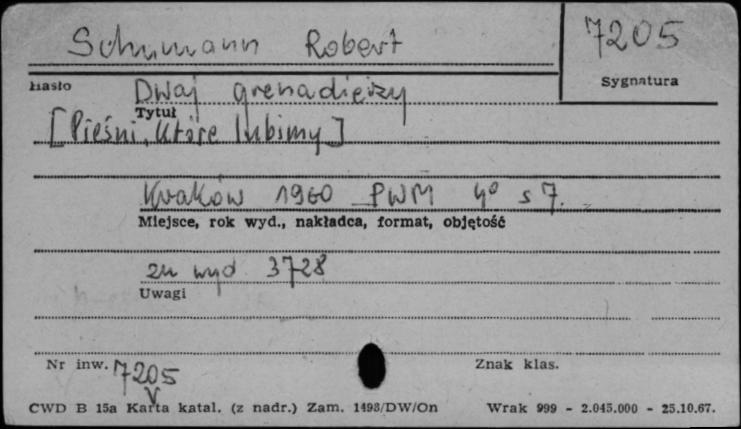 Schumann Robert
7205
Hasło
Sygnatura
Dwaj grenadierzy
Tytuł
[Pieśni, które lubimy]
Kraków 1960 PWM 4° s 7.
Miejsce, rok wyd., nakładca, format, objętość
zn wyd 3728
Uwagi
Nr inw. 7205
Znak klas.
V
CWD B 15a Karta katal. (z nadr.) Zam. 1493/DW/On
Wrak 999 - 2.045.000 - 25.10.67.